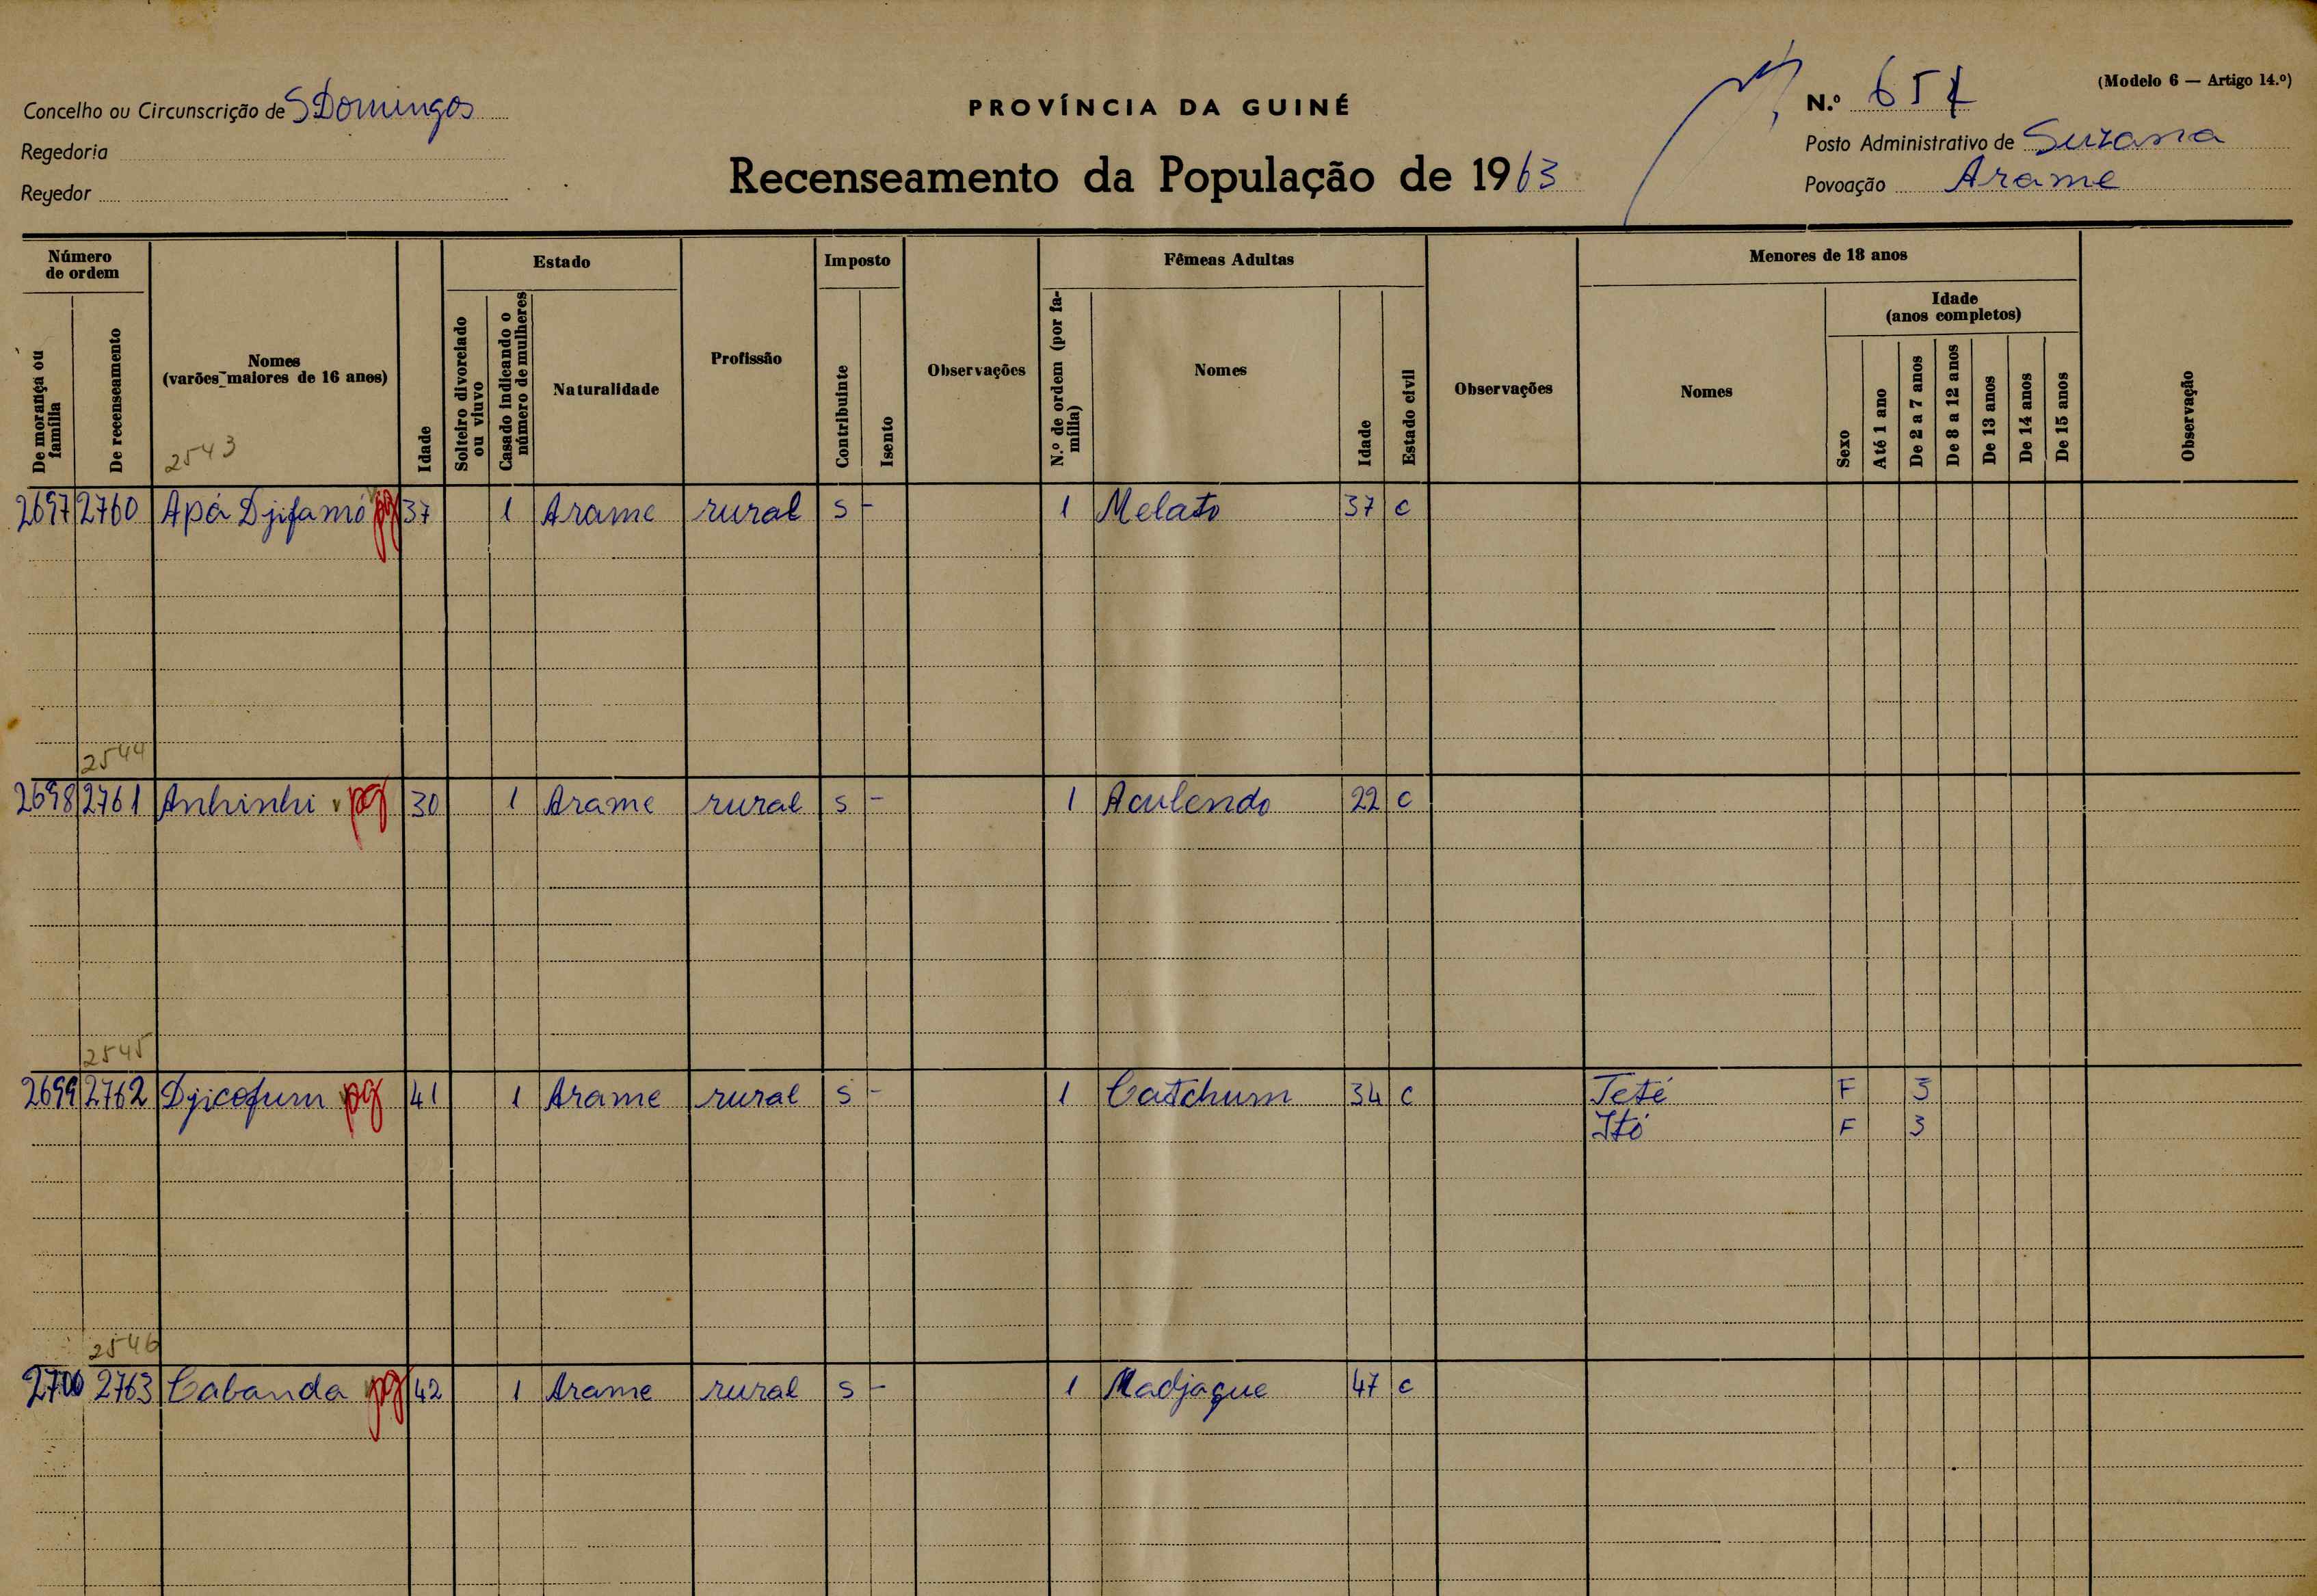 (Modelo 6 — Artigo 14.º)
Concelho ou Circunscrição de S Domingos
PROVÍNCIA DA GUINÉ
N.º 654
Regedoria
Posto Administrativo de Suzana
Regedor
Recenseamento da População de 1963
Povoação Arame
Número de ordem
De morança ou família
De recenseamento
Nomes
(varões maiores de 16 anos)
2543
Idade
Estado
Solteiro divorciado ou viuvo
Casado indicando o número de mulheres
Naturalidade
Profissão
Imposto
Contribuinte
Isento
Observações
Fêmeas Adultas
N.º de ordem (por família)
Nomes
Idade
Estado civil
Observações
Menores de 18 anos
Nomes
Sexo
Idade
(anos completos)
Até 1 ano
De 2 a 7 anos
De 8 a 12 anos
De 13 anos
De 14 anos
De 15 anos
Observação
2697 2760 Apá Djifamó pg 37 1 Arame rural s - 1 Melato 37 c
2544
2698 2761 Anhinhi pg 30 1 Arame rural s - 1 Aculendo 22 c
2545
2699 2762 Djicofum pg 41 1 Arame rural s - 1 Catchum 34 c Teté F 5
Itó F 3
2546
2700 2763 Cabanda pg 42 1 Arame rural s - 1 Madjaque 47 c